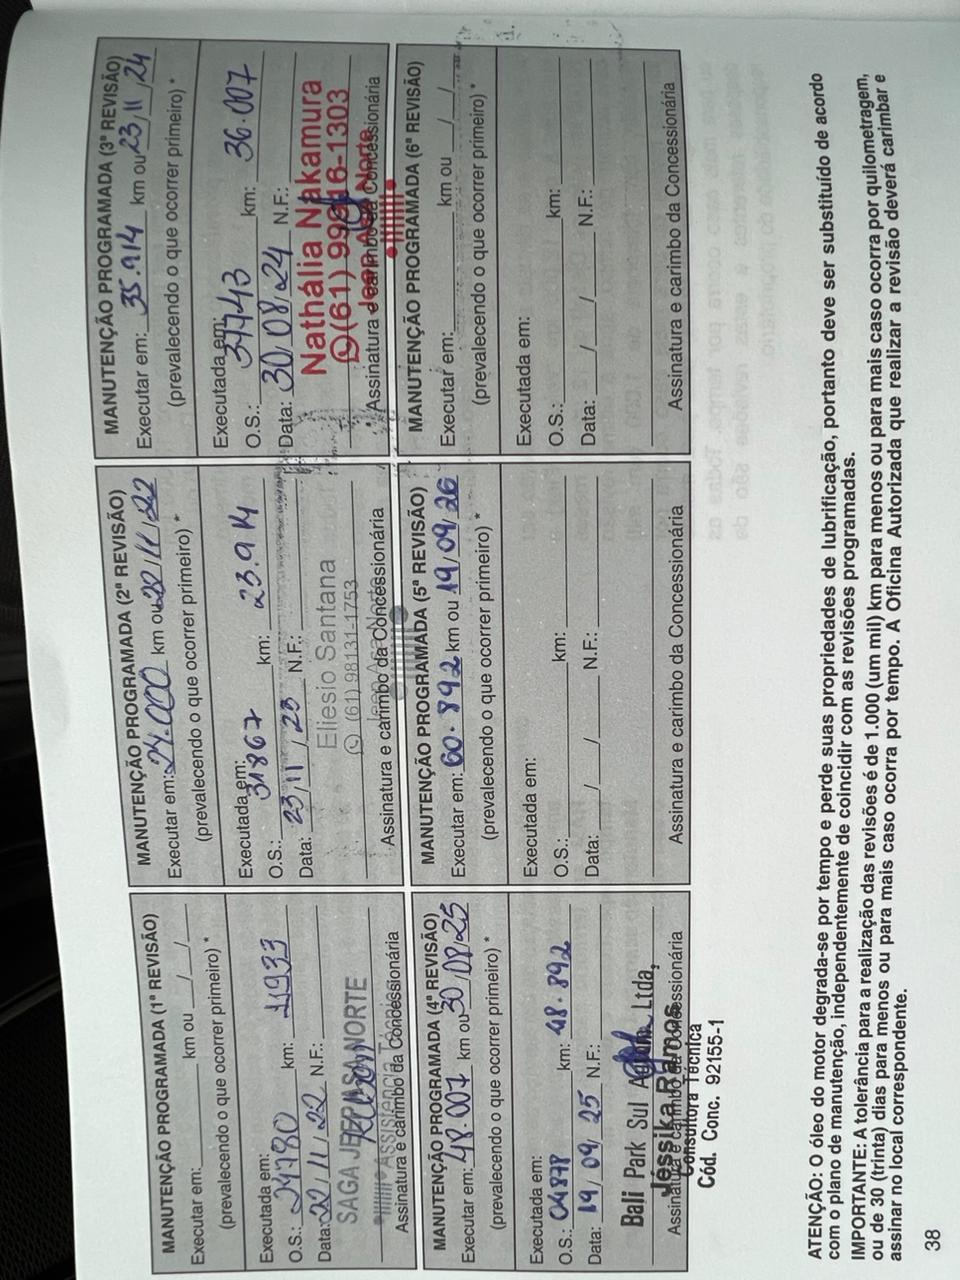 MANUTENÇÃO PROGRAMADA (1ª REVISÃO)
Executar em: km ou / /
(prevalecendo o que ocorrer primeiro) *
Executada em:
O.S.: km: 11933
Data: 22/11/22 N.F.:
SAGA JEEP ASA NORTE
Assistência Técnica
Assinatura e carimbo da Concessionária
MANUTENÇÃO PROGRAMADA (2ª REVISÃO)
Executar em: 24.000 km ou 22/11/22
(prevalecendo o que ocorrer primeiro) *
Executada em:
O.S.: 31867 km: 23.914
Data: 23/11/23 N.F.:
Eliesio Santana
(61) 98131-1753
Jeep Asa Norte
Assinatura e carimbo da Concessionária
MANUTENÇÃO PROGRAMADA (3ª REVISÃO)
Executar em: 35.914 km ou 23/11/24
(prevalecendo o que ocorrer primeiro) *
Executada em:
O.S.: 37743 km: 36.007
Data: 30/08/24 N.F.:
Nathália Nakamura
(61) 99616-1303
Jeep Asa Norte
Assinatura e carimbo da Concessionária
MANUTENÇÃO PROGRAMADA (4ª REVISÃO)
Executar em: 48.007 km ou 30/08/25
(prevalecendo o que ocorrer primeiro) *
Executada em:
O.S.: 04878 km: 48.892
Data: 19/09/25 N.F.:
Bali Park Sul Ltda,
Jéssika Ramos
Assinatura e carimbo da Concessionária
Consultora Técnica
Cód. Conc. 92155-1
MANUTENÇÃO PROGRAMADA (5ª REVISÃO)
Executar em: 60.892 km ou 19/09/26
(prevalecendo o que ocorrer primeiro) *
Executada em:
O.S.: km:
Data: / / N.F.:
Assinatura e carimbo da Concessionária
MANUTENÇÃO PROGRAMADA (6ª REVISÃO)
Executar em: km ou / /
(prevalecendo o que ocorrer primeiro) *
Executada em:
O.S.: km:
Data: / / N.F.:
Assinatura e carimbo da Concessionária
ATENÇÃO: O óleo do motor degrada-se por tempo e perde suas propriedades de lubrificação, portanto deve ser substituído de acordo
com o plano de manutenção, independentemente de coincidir com as revisões programadas.
IMPORTANTE: A tolerância para a realização das revisões é de 1.000 (um mil) km para menos ou para mais caso ocorra por quilometragem,
ou de 30 (trinta) dias para menos ou para mais caso ocorra por tempo. A Oficina Autorizada que realizar a revisão deverá carimbar e
assinar no local correspondente.
38